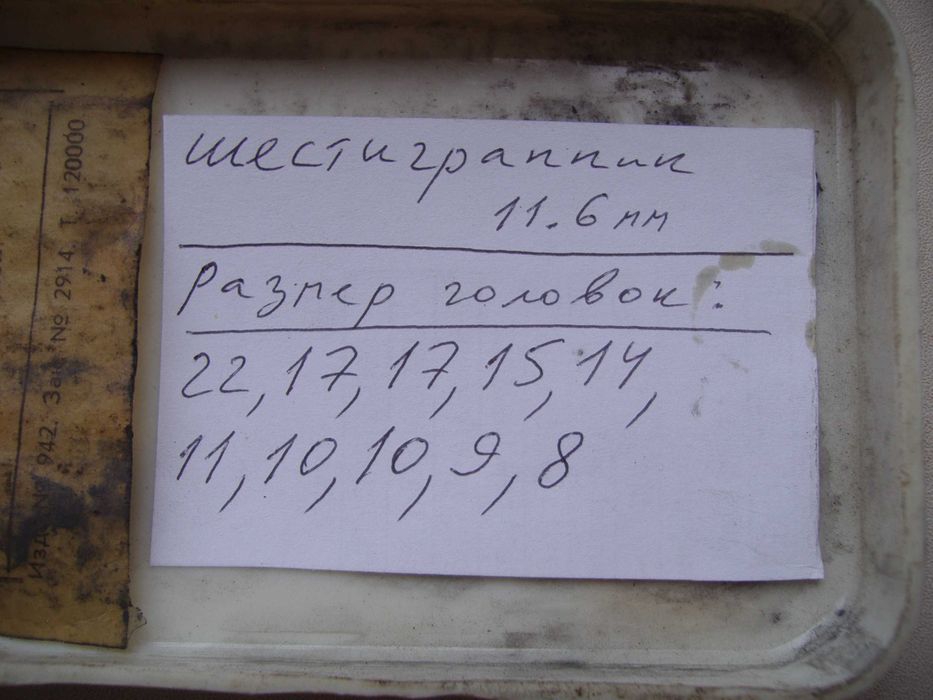 шестигранник
11.6 мм
Размер головок:
22, 17, 17, 15, 14,
11, 10, 10, 9, 8
Изд. № 942. Зак. № 2914. Т. 120000